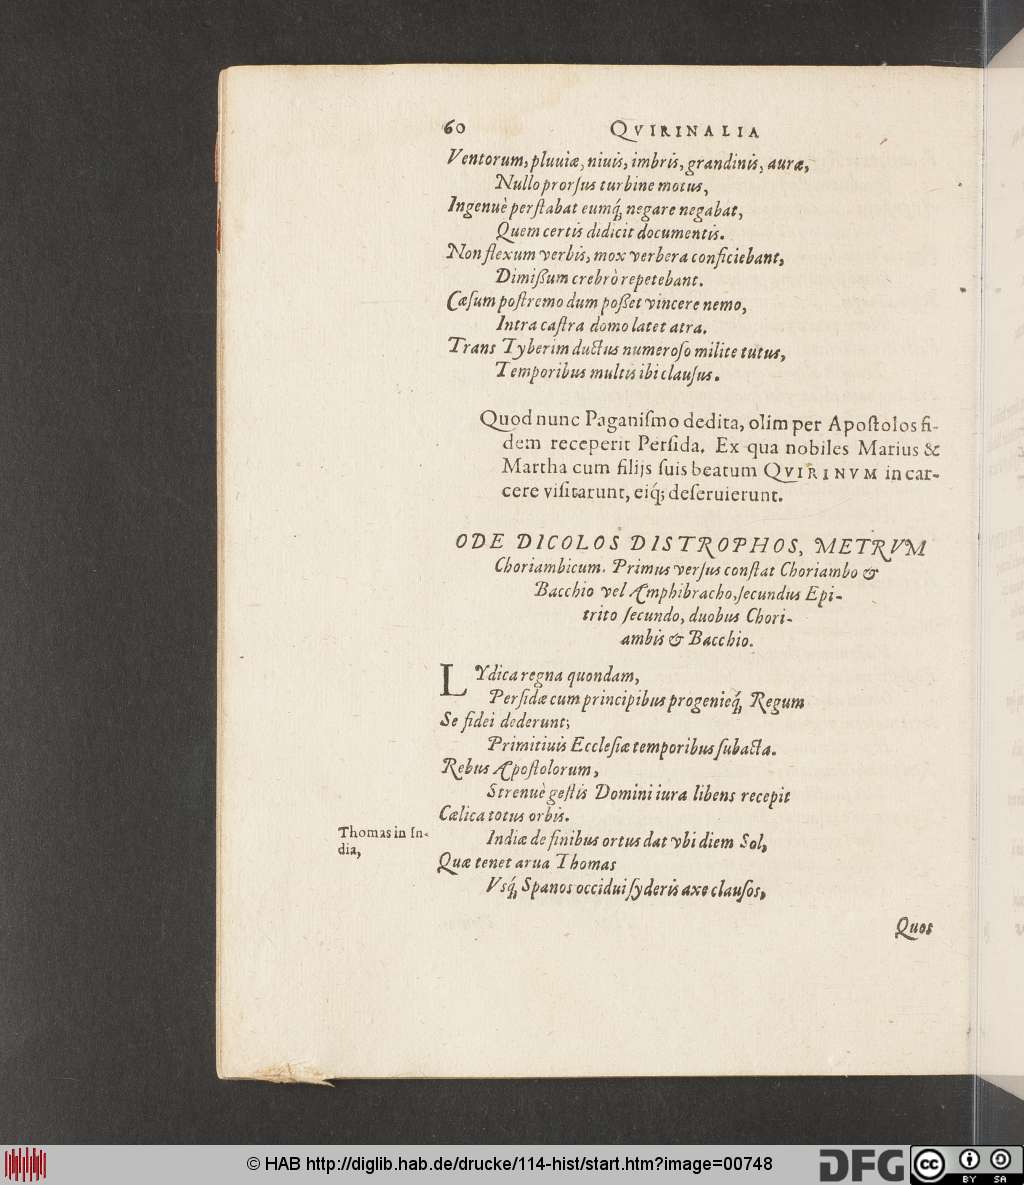 60 QVIRINALIA
Ventorum, pluuiæ, niuis, imbris, grandinis, auræ,
Nullo prorſus turbine motus,
Ingenuè perſtabat eumq́; negare negabat,
Quem certis didicit documentis.
Non flexum verbis, mox verbera conficiebant,
Dimißum crebrò repetebant.
Cæſum poſtremo dum poßet vincere nemo,
Intra caſtra domo latet atra.
Trans Tyberim ductus numeroſo milite tutus,
Temporibus multis ibi clauſus.
Quod nunc Paganiſmo dedita, olim per Apoſtolos fi-
dem receperit Perſida. Ex qua nobiles Marius &
Martha cum filijs ſuis beatum QVIRINVM in car-
cere viſitarunt, eiq́; deſeruierunt.
ODE DICOLOS DISTROPHOS, METRVM
Choriambicum. Primus verſus conſtat Choriambo &
Bacchio vel Amphibracho, ſecundus Epi-
trito ſecundo, duobus Chori-
ambis & Bacchio.
LYdica regna quondam,
Perſidæ cum principibus progenieq́; Regum
Se fidei dederunt;
Primitiuis Eccleſiæ temporibus ſubacta.
Rebus Apoſtolorum,
Strenuè geſtis Domini iura libens recepit
Cælica totus orbis.
Thomas in In-
dia,
Indiæ de finibus ortus dat vbi diem Sol,
Quæ tenet arua Thomas
Vsq́; Spanos occidui ſyderis axe clauſos,
Quos
© HAB http://diglib.hab.de/drucke/114-hist/start.htm?image=00748
DFG
cc
BY SA